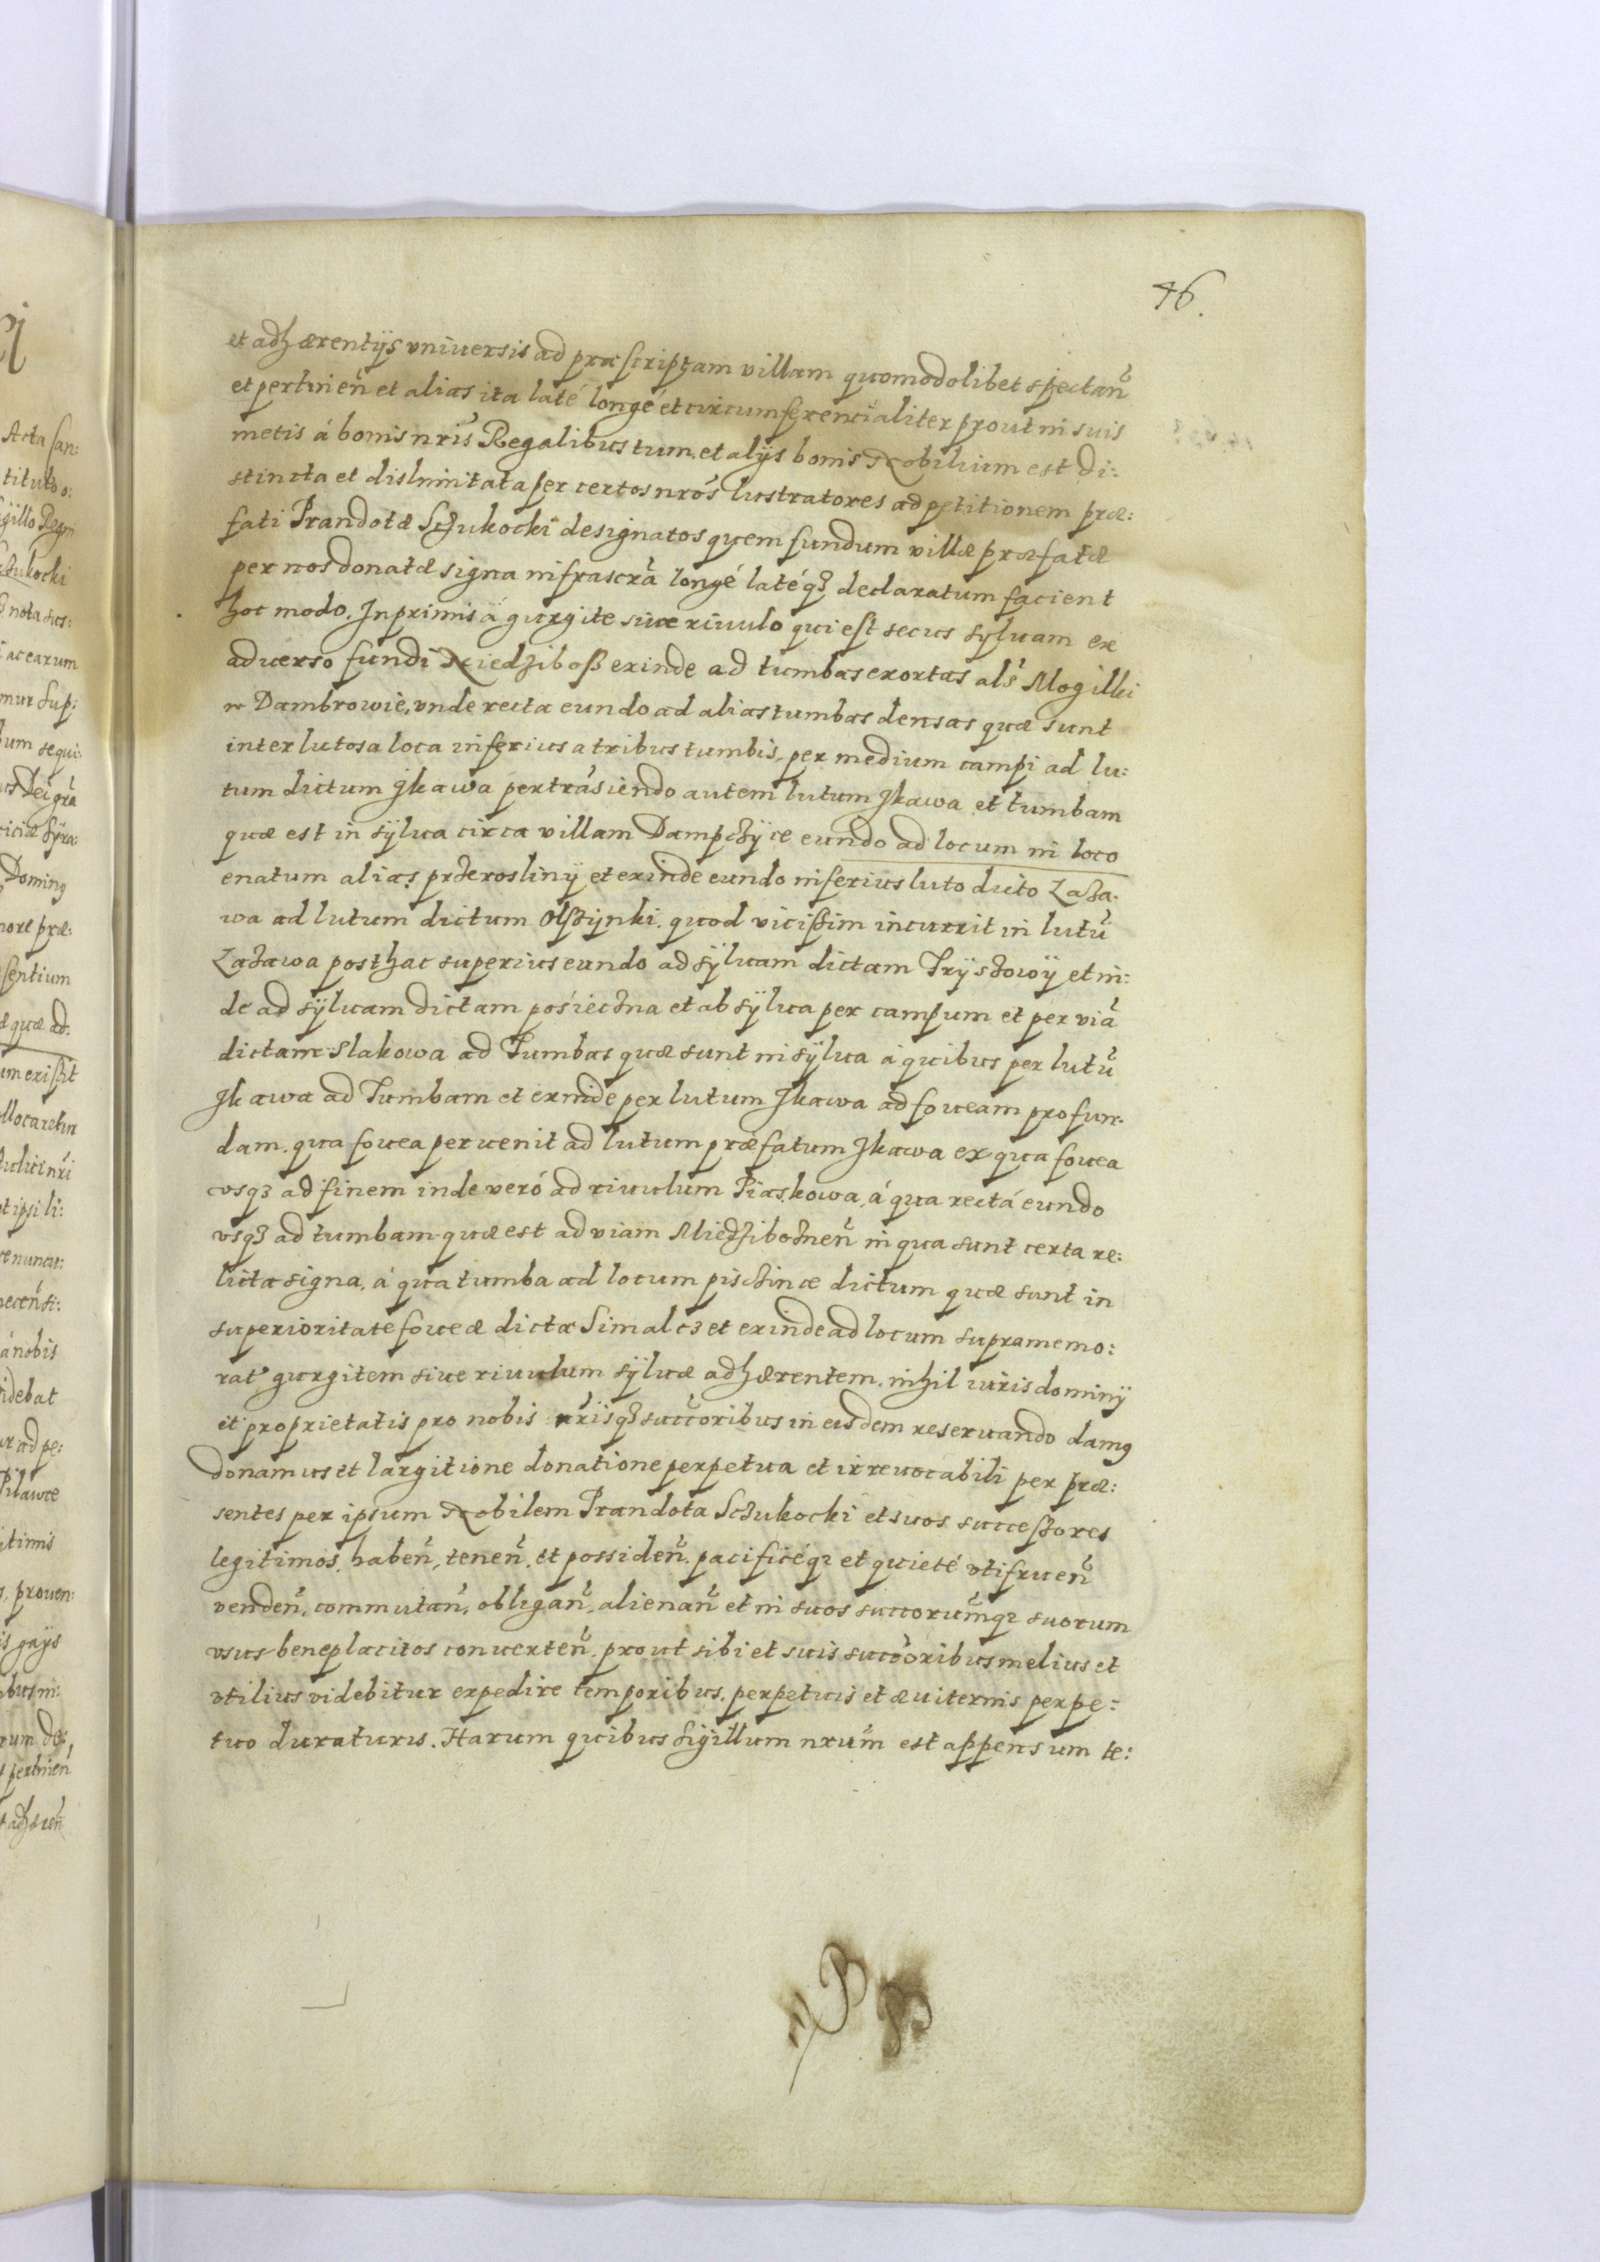 46.
et adhærentijs vniuersis ad præscriptam villam quomodolibet spectan̄
et pertinen̄ et alias ita laté longé et circumferencialiter prout in suis
metis á bonis nr̄is Regalibus tum et alijs bonis Nobilium est di:
stincta et dislimitata per certos nr̄os lustratores ad petitionem præ:
fati Prandotæ Sczukocki designatos quem fundum villæ præfatæ
per nos donatæ signa infrascr̄a longé latéqȝ declaratum facient
hoc modo. Inprimis á gurgite siue riuulo qui est secus syluam ex
aduerso fundi Niedziboß exinde ad tumbas exortas als̄ Mogilki
w Dambrowie, vnde recta eundo ad alias tumbas densas quæ sunt
inter lutosa loca inferius a tribus tumbis, per medium campi ad lu:
tum dictum Jkawa pertrāsiendo autem lutum Jkawa et tumbam
quæ est in sÿlua circa villam Dampczÿce eundo ad locum in loco
enatum alias przeroslinÿ et exinde eundo inferius luto dicto Zaza-
wa ad lutum dictum Olszÿnki. quod vicissim incurrit in lutū
Zazawa posthac superius eundo ad sÿluam dictam Trÿszowÿ et in:
de ad sÿluam dictam posieczna et ab sÿlua per campum et per viā
dictam Slakowa ad Tumbas quæ sunt in sÿlua á quibus per lutū
Jkawa ad Tumbam et exinde per lutum Jkawa ad foueam profun-
dam. qua fouea peruenit ad lutum præfatum Jkawa ex qua fouea
vsqȝ ad finem inde veró ad riuulum Piaskowa, á qua rectá eundo
vsqȝ ad tumbam quæ est ad viam Miedziboznen̄ in qua sunt certa re:
licta signa, á qua tumba ad locum pisczinæ dictum quæ sunt in
superioritate foueæ dictæ Simalcȝ et exinde ad locum supramemo:
rat° gurgitem siue riuulum sÿluæ adhærentem. nihil iuris dominÿ
et proprietatis pro nobis nr̄isqȝ succ̄oribus in eisdem reseruando damꝰ
donamus et largitione donatione perpetua et irreuocabili per præ:
sentes per ipsum Nobilem Prandota Sczukocki et suos successores
legitimos, haben̄, tenen̄, et possiden̄. pacificéqȝ et quieté vtifruen̄
venden̄, commutan̄, obligan̄, alienan̄ et in suos succorum̄qȝ suorum
vsus beneplacitos conuerten̄. prout sibi et suis succ̄oribus melius et
vtilius videbitur expedire temporibus, perpetuis et æuiternis perpe:
tuo duraturis. Harum quibus sigillum nrum̄ est appensum te: